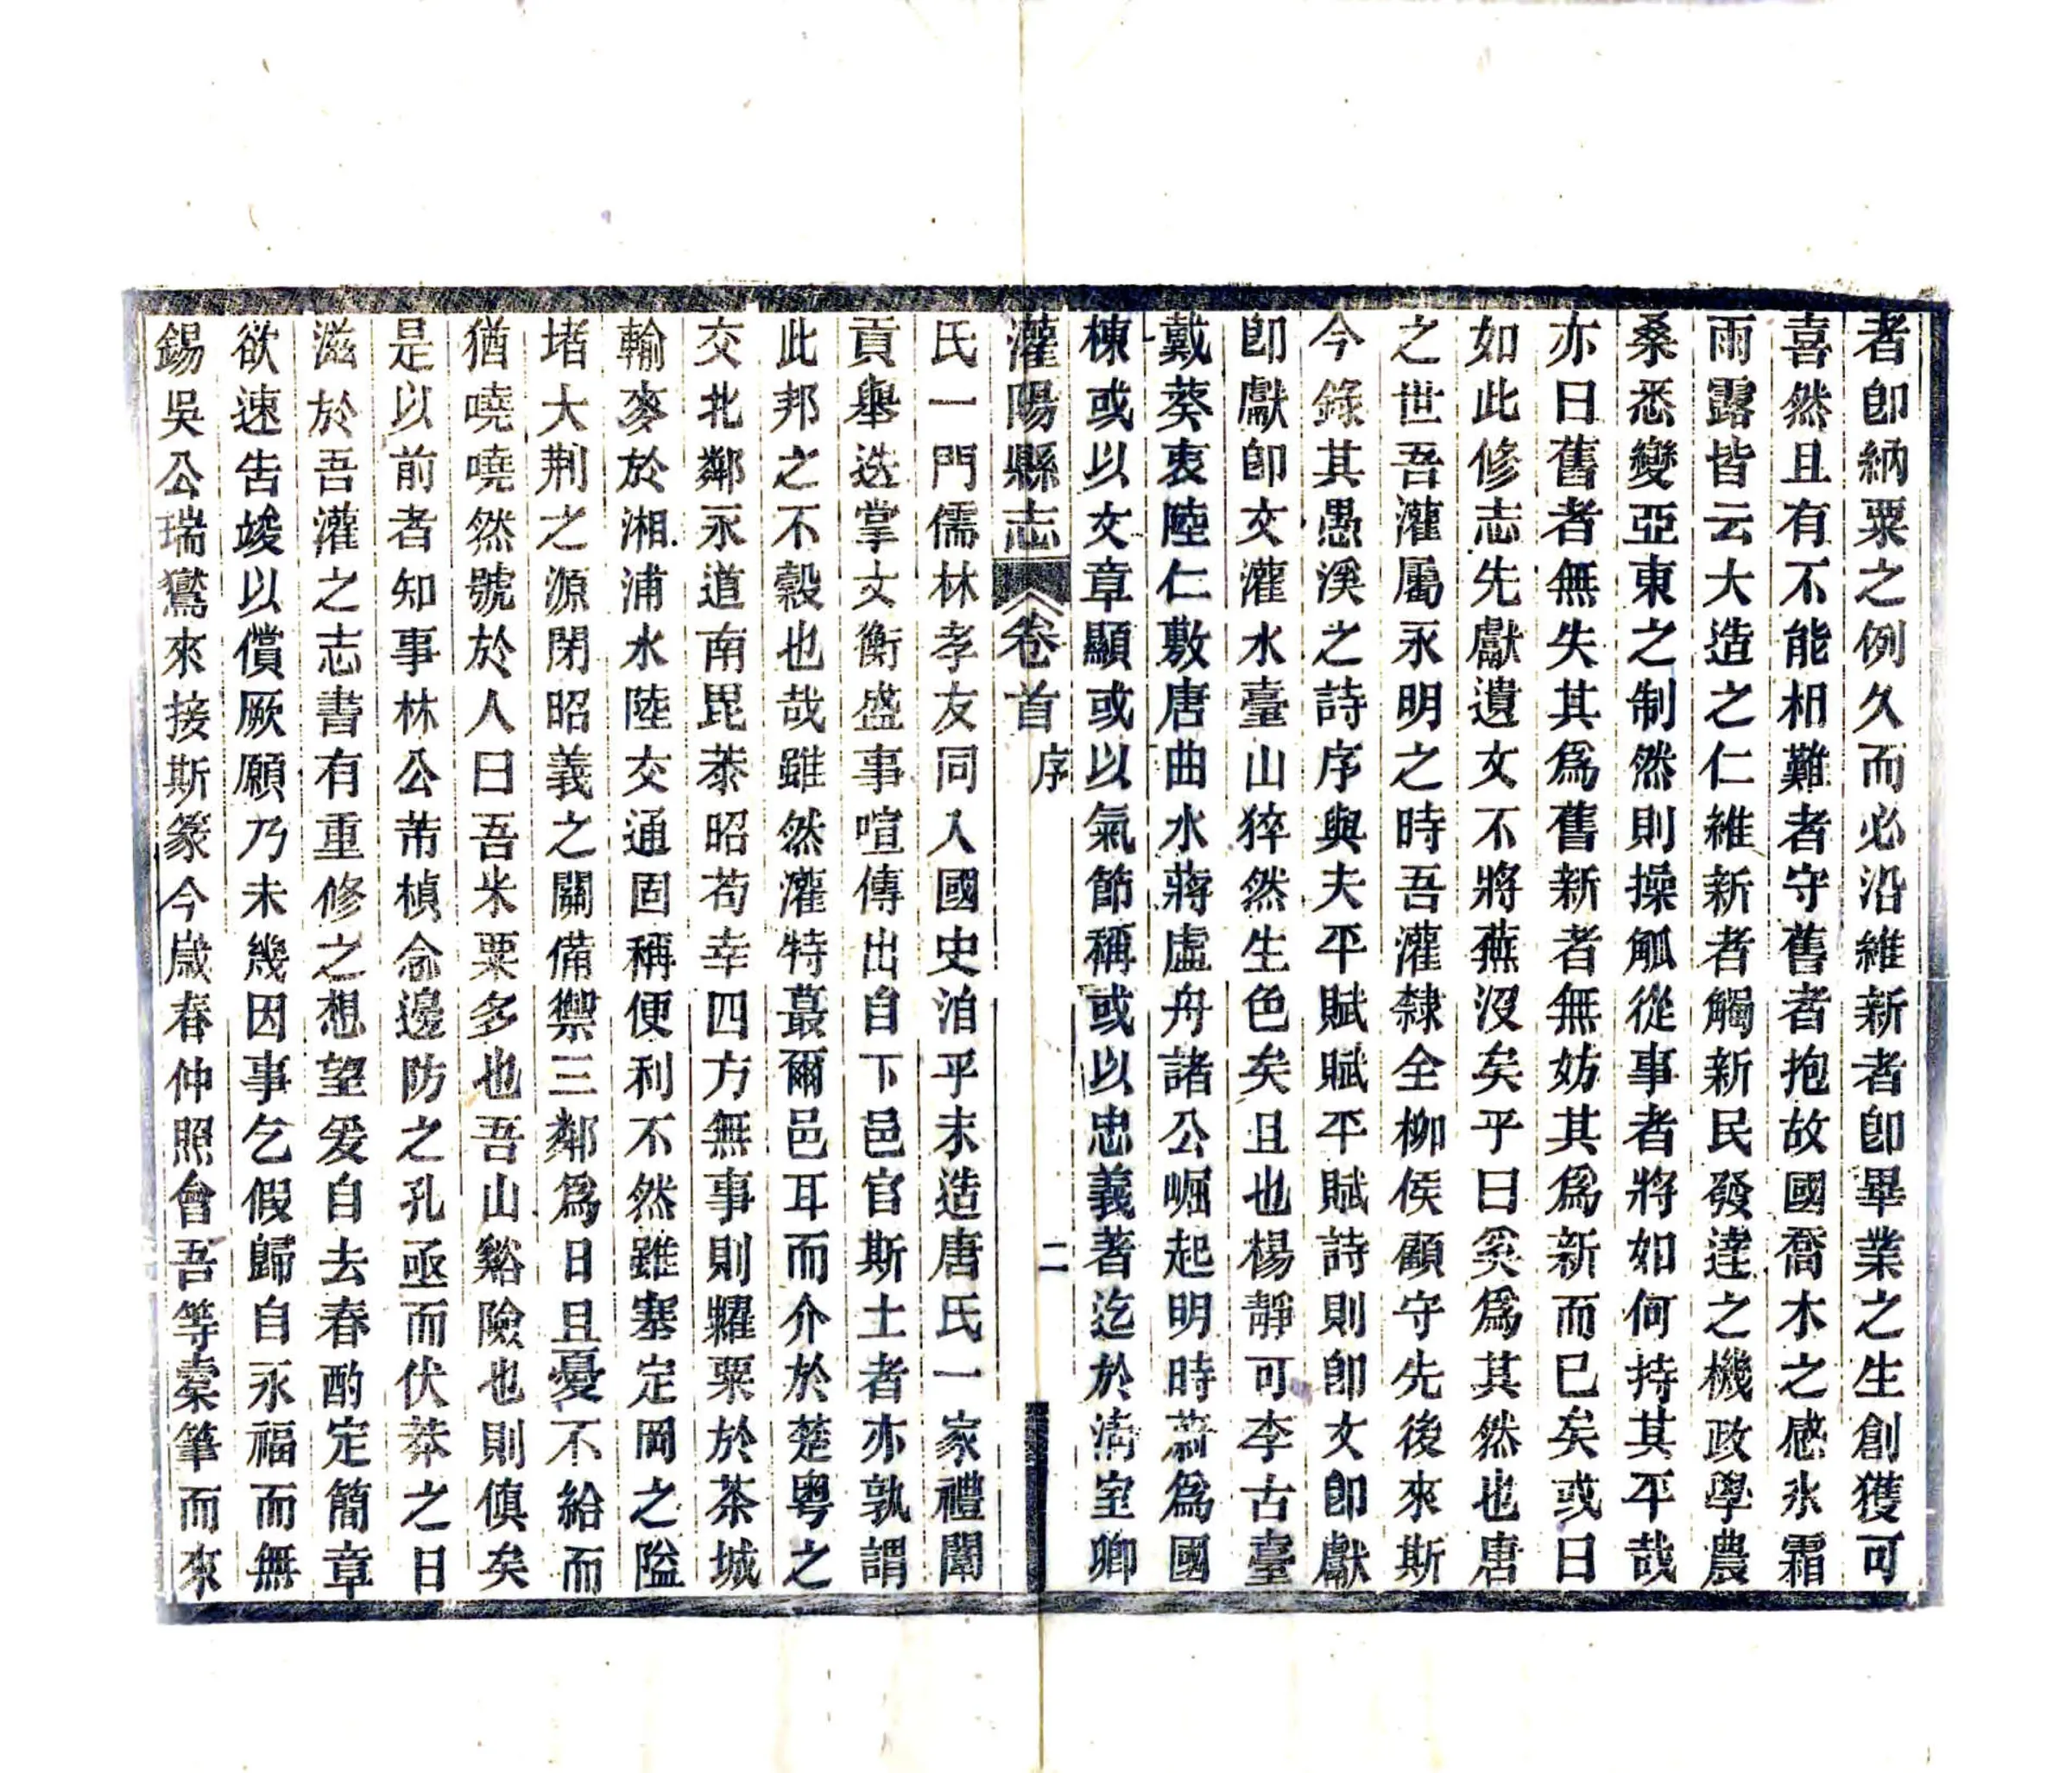 者卽納粟之例久而必沿維新者卽畢業之生創獲可
喜然且有不能相難者守舊者抱故國喬木之感氷霜
雨露皆云大造之仁維新者觸新民發達之機政學農
桑悉變亞東之制然則操觚從事者將如何持其平哉
亦曰舊者無失其爲舊新者無妨其爲新而已矣或曰
如此修志先獻遺文不將蕪沒矣乎曰奚爲其然也唐
之世吾灌屬永明之時吾灌隸全柳侯顧守先後來斯
今錄其愚溪之詩序與夫平賦賦平賦詩則卽文卽獻
卽獻卽文灌水臺山猝然生色矣且也楊靜可李古臺
戴葵衷陸仁敷唐曲水蔣虛舟諸公崛起明時蔚爲國
棟或以文章顯或以氣節稱或以忠義著迄於淸室卿
灌陽縣志 卷首 序 二
氏一門儒林孝友同入國史洎乎末造唐氏一家禮闈
貢舉迭掌文衡盛事喧傳出自下邑官斯土者亦孰謂
此邦之不穀也哉雖然灌特蕞爾邑耳而介於楚粵之
交北鄰永道南毘恭昭苟幸四方無事則糶粟於茶城
輸麥於湘浦水陸交通固稱便利不然雖塞定岡之隘
堵大荆之源閉昭義之關備禦三鄰爲日且憂不給而
猶嘵嘵然號於人曰吾米粟多也吾山谿險也則傎矣
是以前者知事林公芾楨念邊防之孔亟而伏莽之日
滋於吾灌之志書有重修之想望爰自去春酌定簡章
欲速吿竣以償厥願乃未幾因事乞假歸自永福而無
錫吳公瑞鸞來接斯篆今歲春仲照會吾等橐筆而來